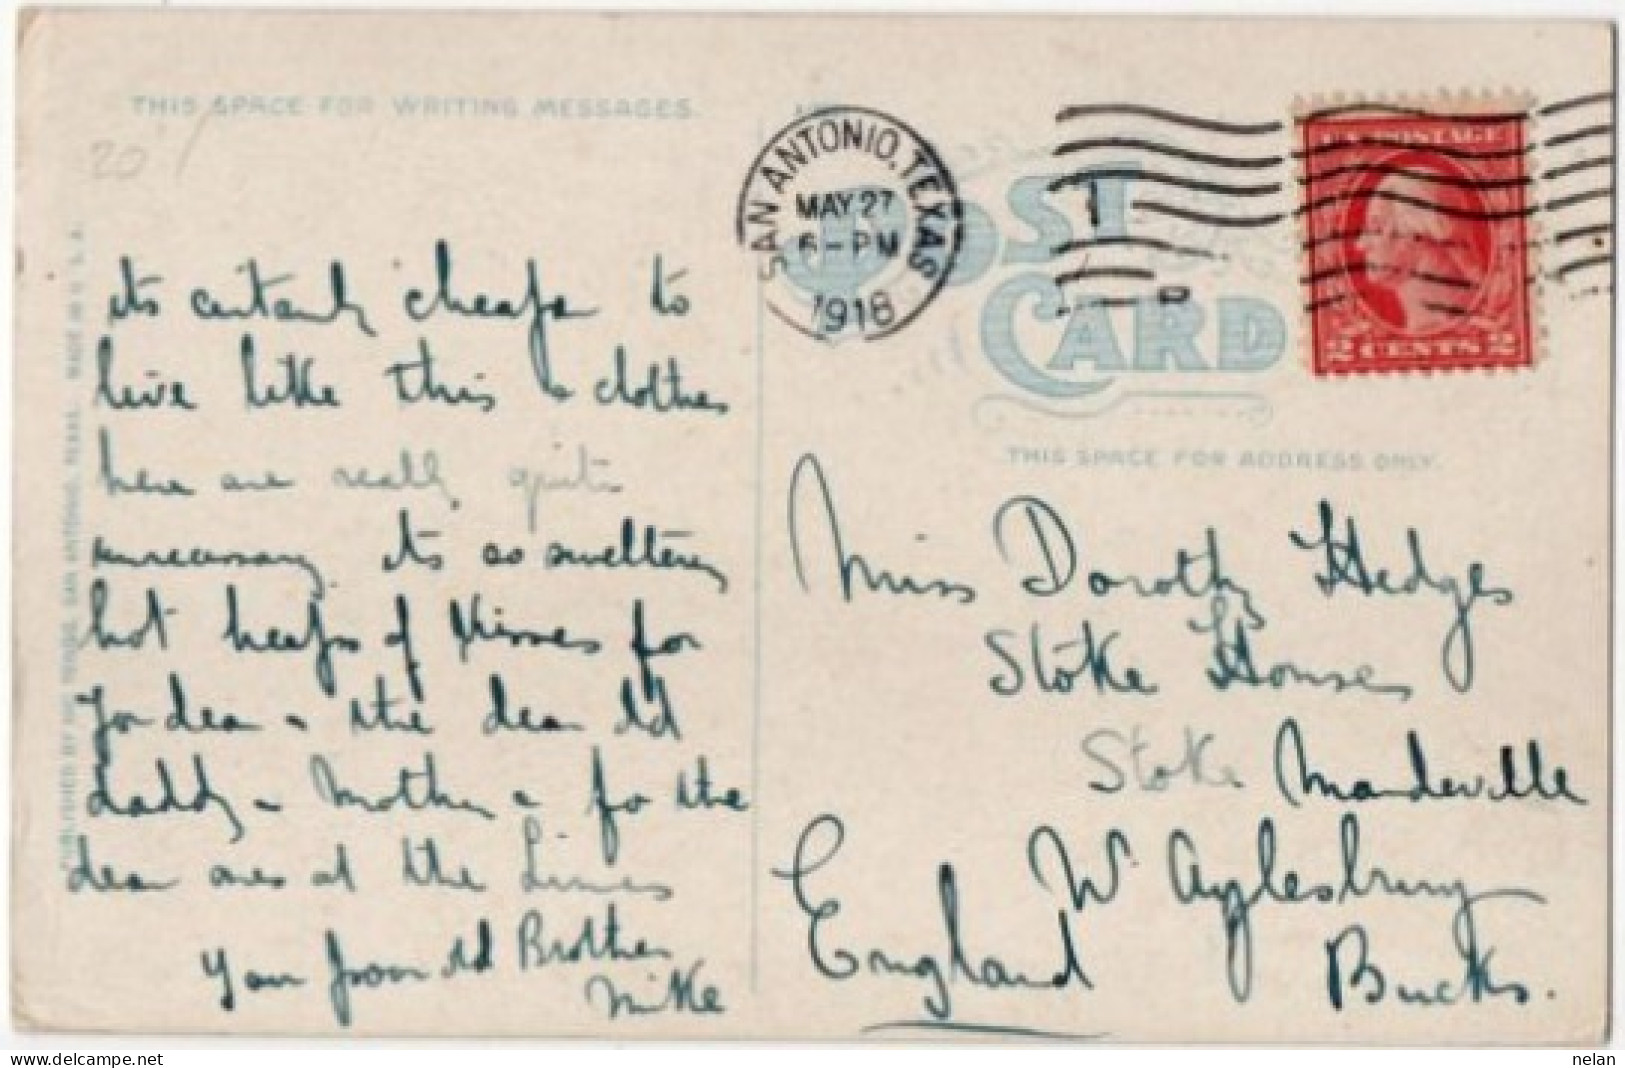 THIS SPACE FOR WRITING MESSAGES.
20
its certainly cheaper to
live like this & clothes
here are really quite
unnecessary its so sweltering
hot heaps of Kisses for
You dear & the dear old
Daddy & Mother & for the
dear ones at the Limes
Your poor old Brother
Mike
PUBLISHED BY NIC TENGG, SAN ANTONIO, TEXAS. MADE IN U. S. A.
SAN ANTONIO, TEXAS
MAY 27
6-PM
1918
U.S. POSTAGE
2 CENTS 2
POST CARD
THIS SPACE FOR ADDRESS ONLY.
Miss Dorothy Hedges
Stoke House
Stoke Mandeville
Nr Aylesbury
England Bucks.
nelan